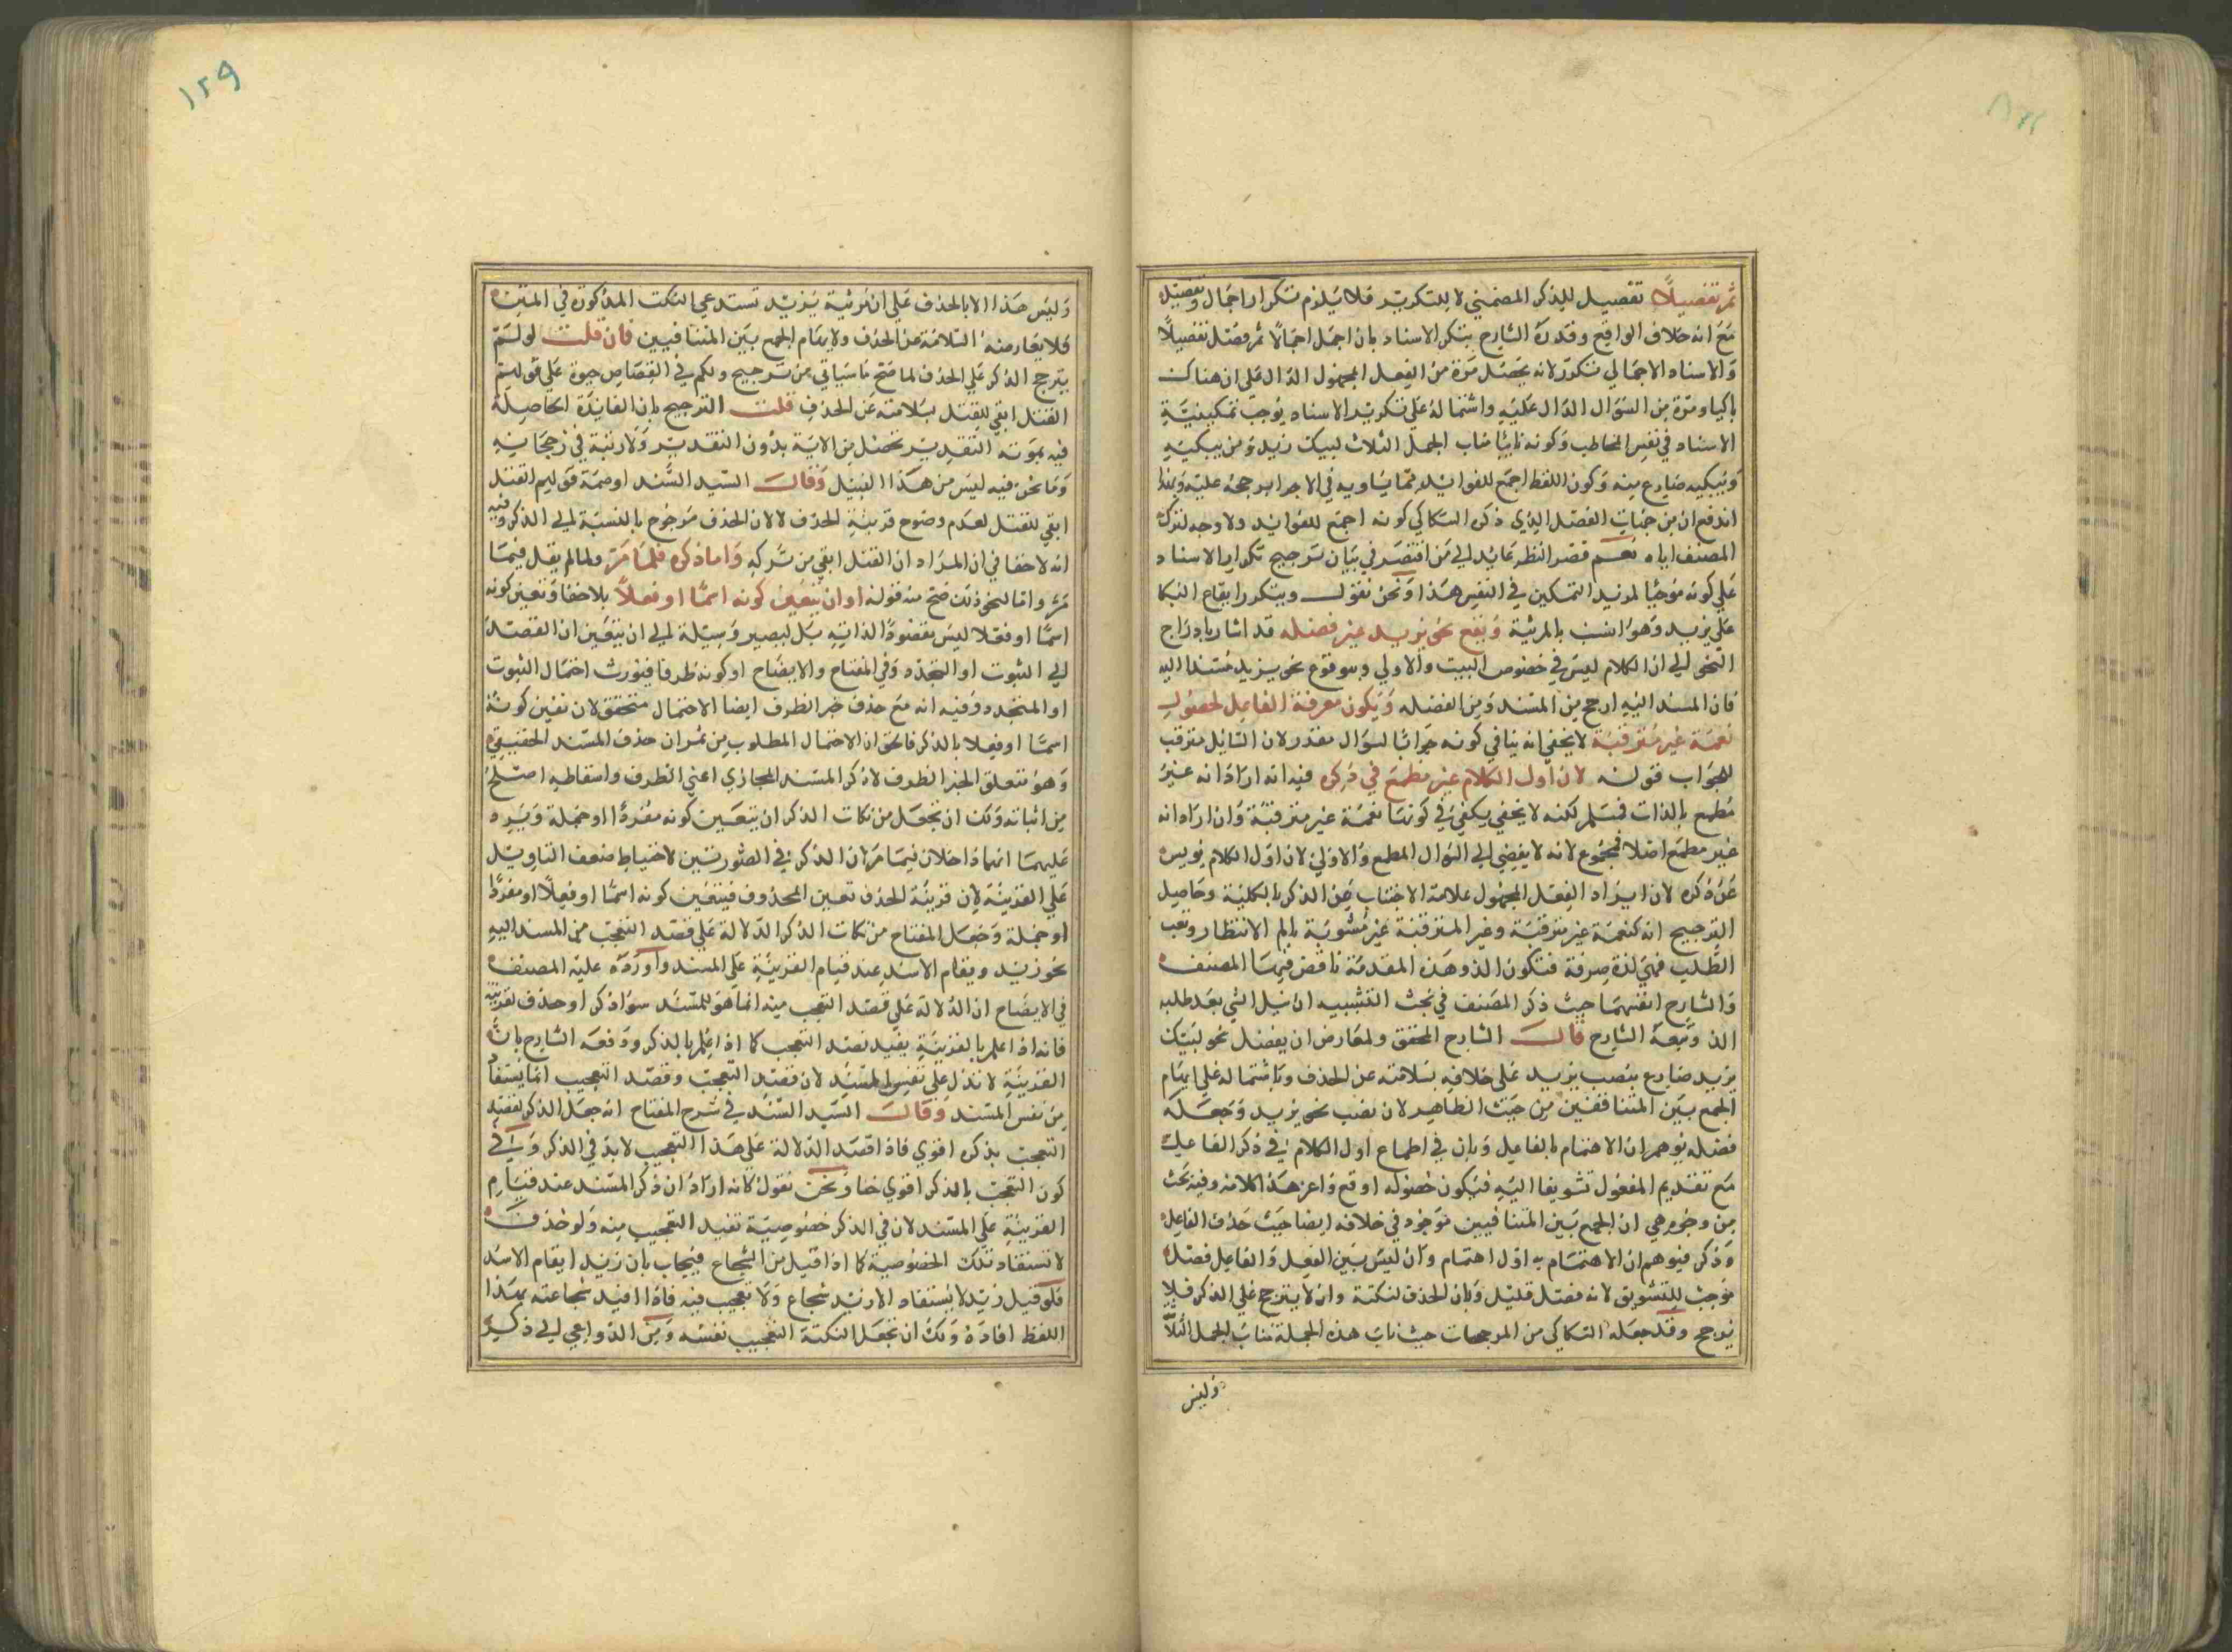 ثم تفصيلا تفصيل للذكر المضمني لا للتكرير فلا يلزم تكرار اجمال وتفصيل
مع انه خلاف الواقع وقدره الشارح بتكر الاسناد بان اجمل اجمالا ثم فصل تفصيلا
والاسناد الاجمالي تكرر لانه يحصل مرة من الفعل المجهول الدال على ان هناك
باكيا ومرة من السؤال الدال عليه واشتماله على تكرير الاسناد يوجب تمكينية
الاسناد في نفس المخاطب وكونه نائبا مناب الجمل الثلاث لبيك زيد ومن يبكيه
ويبكيه ضارع منه وكون اللفظ اجمع للفوائد مما يساويه في الاجزا يرجحه عليه وبهذا
اندفع ان من جنبات الفضل الذي ذكره السكاكي كونه اجمع للفوايد ولا وجه لترك
المصنف اياه نعم قصر النظر عايد الى من اقتصر في بيان ترجيح تكرار الاسناد
على كونه موجبا لمزيد التمكين في النفس هذا ونحن نقول ويتكرر ايقاع البكا
على يزيد وهو انسب بالمرثية وبقع نحو يزيد غير فضله قد اشار بادراج
النحو الى ان الكلام ليس في خصوص البيت والاولى وبوقوع نحو يزيد مسندا اليه
فان المسند اليه ارجح من المسند ومن الفضله ويكون معرفة الفاعل لحصول
نعمة غير مترقبة لا يخفى انه ينافي كونه جوابا لسؤال مقدر لان السائل مترقب
للجواب قوله لان اول الكلام غير مطمع في ذكره فيه انه اراد انه غير
مطمع بالذات فمسلم لكنه لا يخفى يكفي في كونها نعمة غير مترقبة وان اراد انه
غير مطمع اصلا فممنوع لانه لا يفضي الى السؤال المطمع والاولى لان اول الكلام يويس
عن ذكره لان ايراد الفعل المجهول علامة الاجتناب عن الذكر بالكلية وحاصل
الترجيح انه كنعمة غير مترقبة وغير المترقبة غير مشوبة بالم الانتظار وتعب
الطلب فهي لذة صرفة فتكون الذ وهذه المقدمة ناقض فيها المصنف
والشارح انفسهما حيث ذكر المصنف في بحث التشبيه ان نيل الشي بعد طلبه
الذ وتبعه الشارح قال الشارح المحقق ولمعارض ان يفضل نحو لبيك
يزيد ضارع بنصب يزيد على خلافه بسلامته عن الحذف وباشتماله على ايهام
الجمع بين المتناقضين من حيث الظاهر لان نصب نحو يزيد وجعله
فضله يوهم ان الاهتمام بالفاعل وبان في اطماع اول الكلام في ذكر الفاعل
مع تقديم المفعول تشويقا اليه فيكون حصوله اوقع واعز هذا كلامه وفيه بحث
من وجوه هي ان الجمع بين المتنافيين موجود في خلافه ايضا حيث حذف الفاعل
وذكر فيوهم ان الاهتمام به اول اهتمام وان ليس بين الفعل والفاعل فصل
موجب للتشويق لانه فصل قليل وبان الحذف لنكتة وان لا يترجح على الذكر فلا
يوجح وقد جعله السكاكي من الموجهات حيث ناب هذه الجملة مناب الجمل الثلاث
وليس
١٢٩
وليس هذا الا بالحذف على ان مرثية يزيد تستدعي النكت المذكورة في المتن
فلا يعارضه السلامة عن الحذف ولا يهام الجمع بين المتنافيين فان قلت لو لم
يترجح الذكر على الحذف لما صح ما سياتي من ترجيح ولكم في القصاص حيوة على قولهم
القتل انفى للقتل بسلامته عن الحذف قلت الترجيح بان الفايدة الحاصلة
فيه بمونة التقدير تحصل من الاية بدون التقدير ولا ريبة في رجحانه
وما نحن فيه ليس من هذا القبيل وقال السيد السند اوضمة قولهم القتل
انفى للقتل لعدم وضوح قرينة الحذف لا لان الحذف مرجوح بالنسبة الى الذكر وفيه
انه لا خفا في ان المراد ان القتل انفى من تركه واما ذكره فلما مر ولما لم يقل فيما
مر واما لنحو ذلك صح منه قوله او ان يتعين كونه اسما او فعلا بلا خفا وتعين كونه
اسما او فعلا ليس مقصودا لذاته بل ليصير وسيلة الى ان يتعين ان القصد
الى الثبوت او التجدد وفي المفتاح والايضاح او كونه ظرفا فيورث احتمال الثبوت
او المتجدد وفيه انه مع حذف خبر الظرف ايضا الاحتمال متحقق لان تعين كونه
اسما او فعلا بالذكر فالحق ان الاحتمال المطلوب من ثمران حذف المسند الحقيقي
وهو متعلق الخبر الظرف لا ذكر المسند المجازي اعني الظرف واسقاطه اصلح
من اثباته ولك ان تجعل من نكات الذكر ان يتعين كونه مفردا او جملة ويرد
عليهما انهما داخلان فيما مر ان الذكر في الصورتين لاحتياط ضعف التاويل
على القرينة لان قرينة الحذف تعين المحذوف فيتعين كونه اسما او فعلا او مفردا
او جملة وجعل المفتاح من نكات الذكر الدلالة على قصد التعجب من المسند اليه
نحو زيد ويقام الاسد عند قيام القرينة على المسند واورده عليه المصنف
في الايضاح ان الدلالة على قصد التعجب منه انما هو للمسند سوا ذكر او حذف لقرينة
فانه اذا علم بالقرينة يفيد قصد التعجب كما اذا علم بالذكر ودفعه الشارح بان
القرينة لا تدل على نفس المسند لان قصد التعجب وقصد التعجيب انما يستفاد
من نفس المسند وقال السيد السند في شرح المفتاح انه جعل الذكر لقصد
التعجب بذكره اقوى فاذا قصد الدلالة على هذا التعجيب لا بد في الذكر وفي
كون التعجب بالذكر اقوى خفا ونحن نقول كانه اراد ان ذكر المسند عند قيام
القرينة على المسند لان في الذكر خصوصية تفيد التعجيب منه ولو حذف
لا تستفاد تلك الخصوصية كما اذا قيل من الشجاع فيجاب بان زيد ايقام الاسد
فلو قيل زيد لا يستفاد الا زيد شجاع ولا تعجيب فيه فاذا افيد شجاعته بهذا
اللفظ افاده ولك ان تجعل النكتة التعجيب نفسه ومن الدواعي الى ذكر